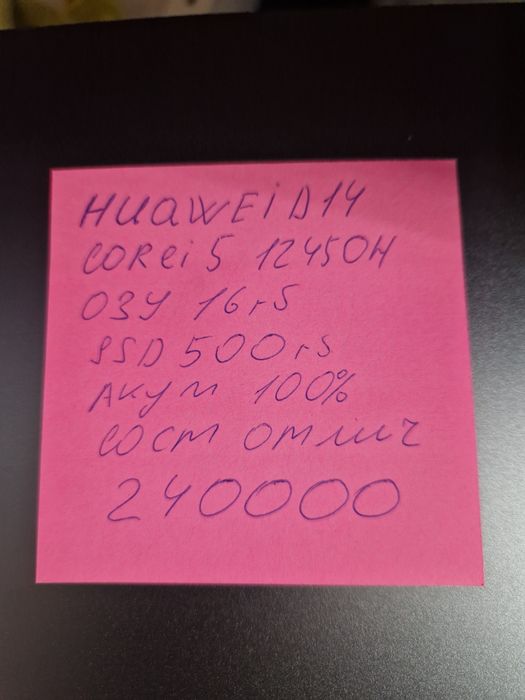 HUAWEI D14
CORE i5 12450H
ОЗУ 16 гб
SSD 500 гб
Акум 100%
сост отлич
240000